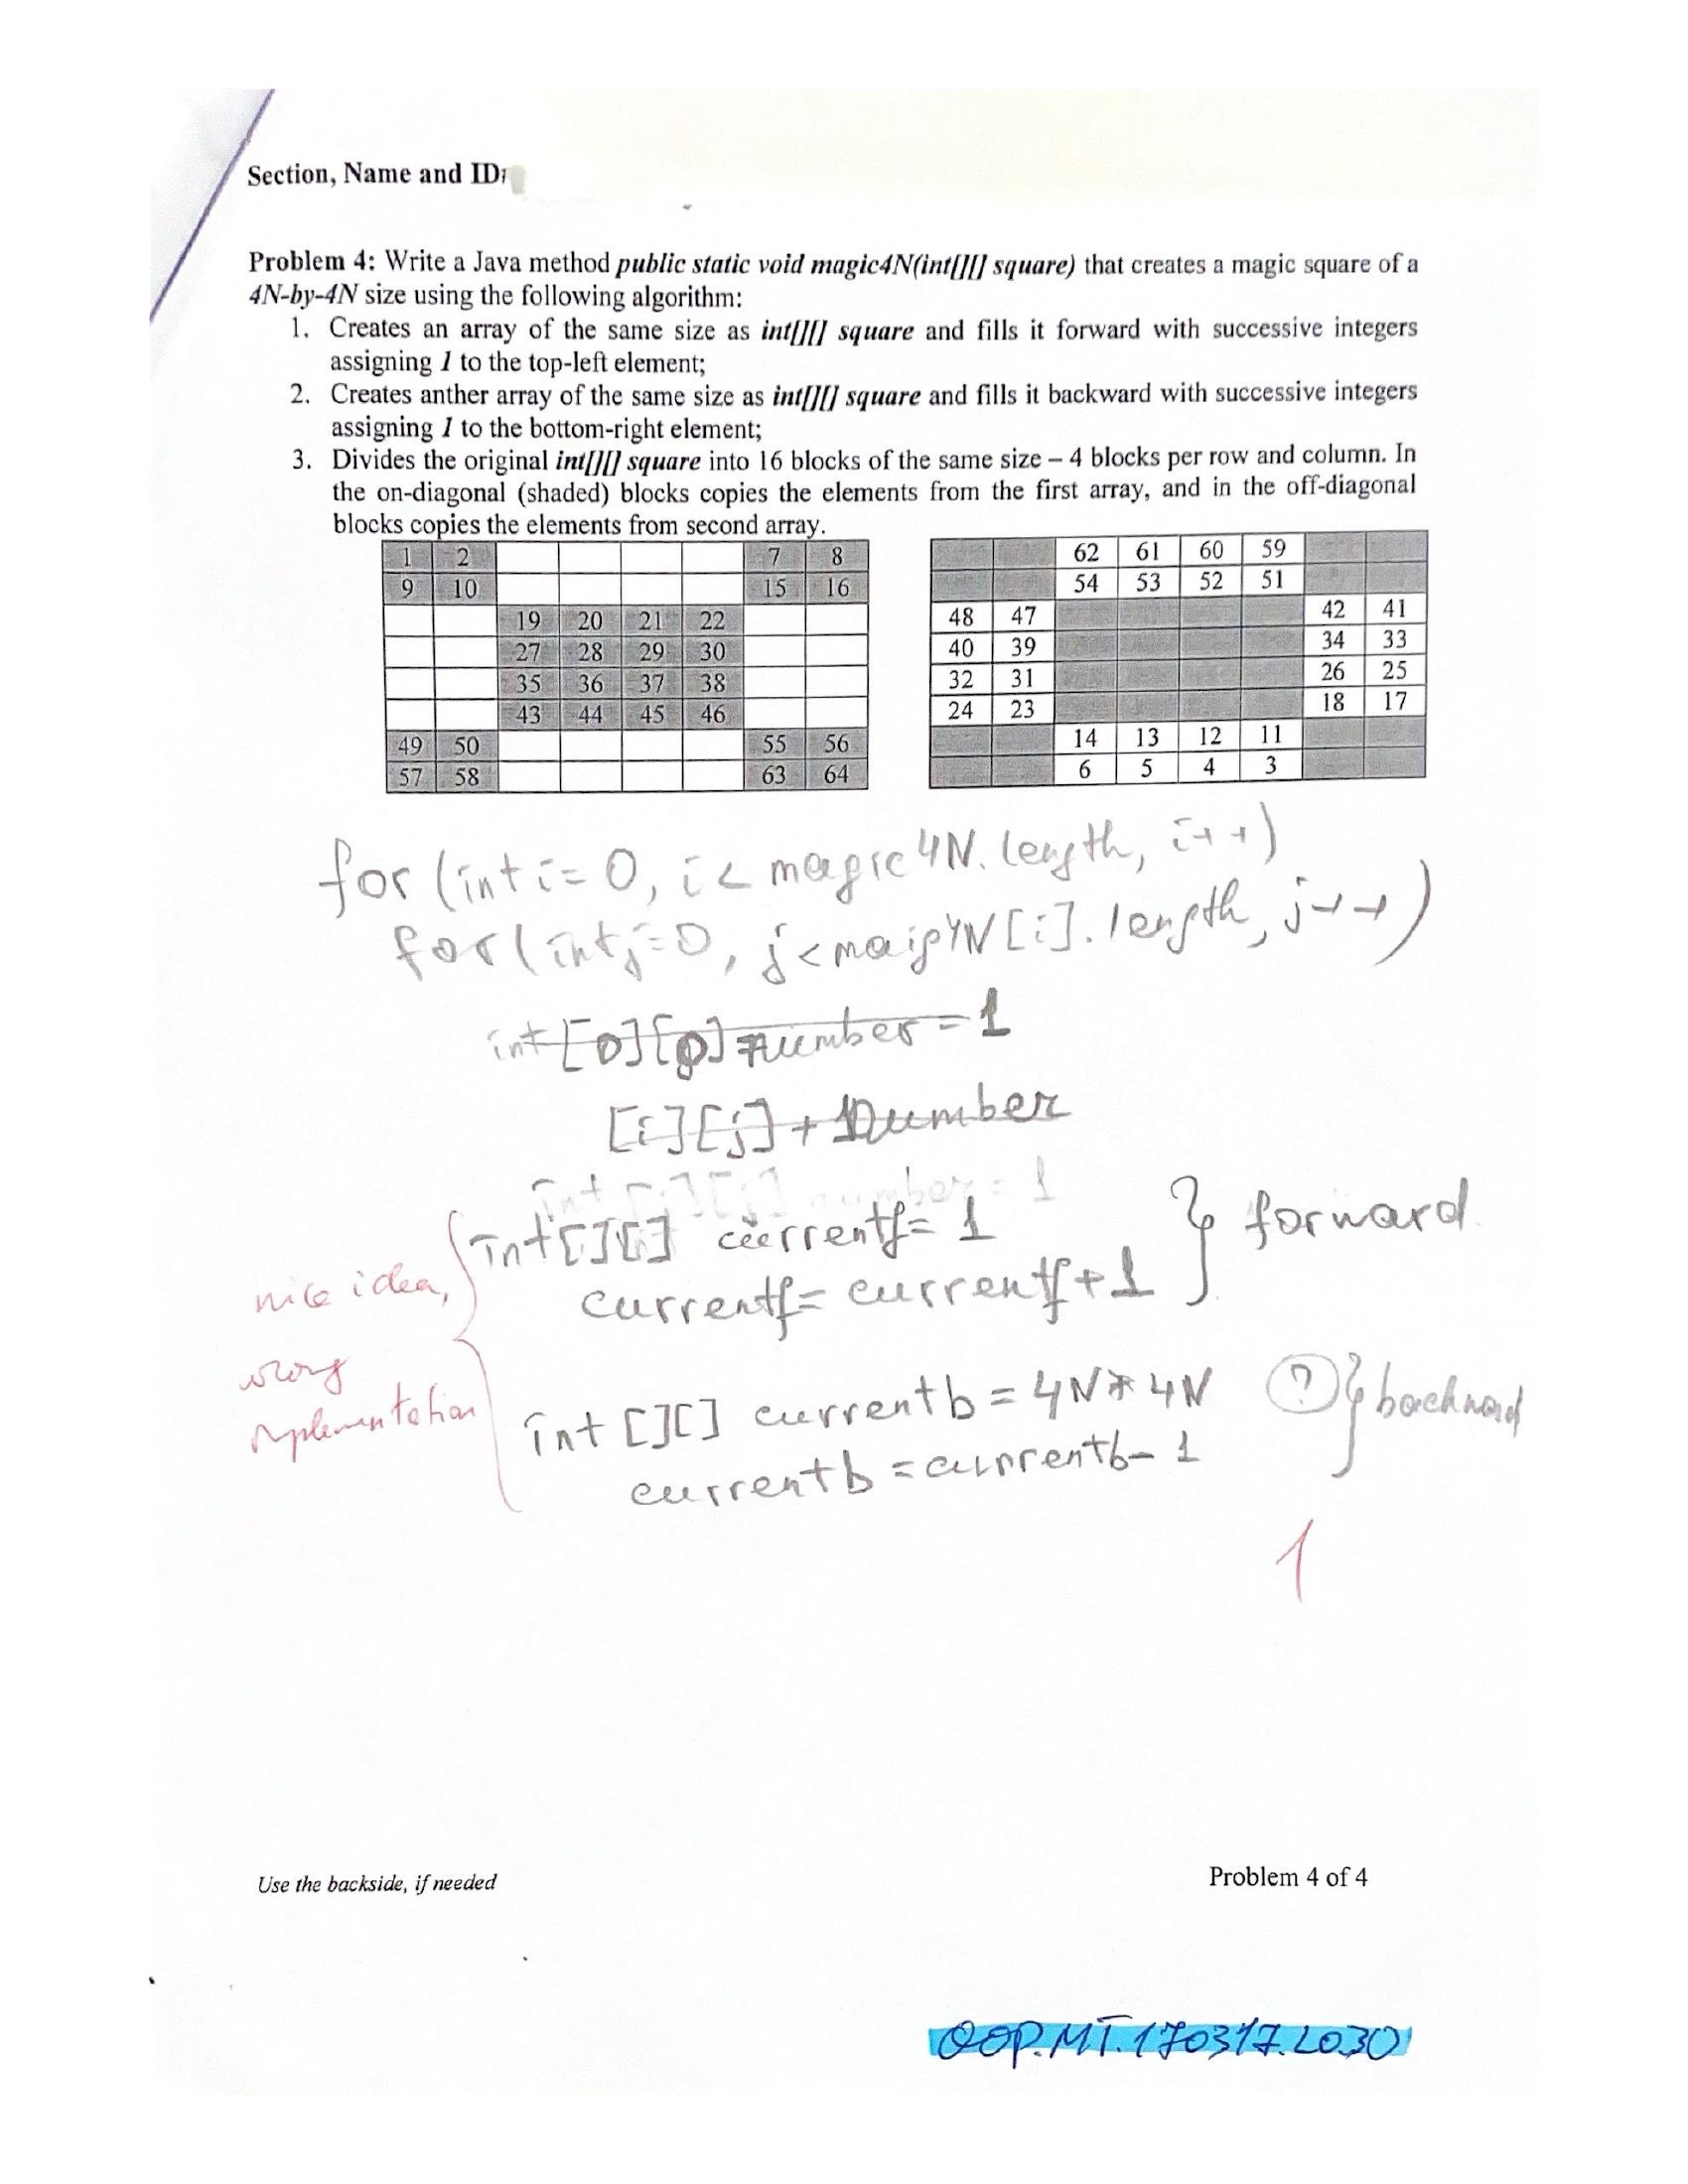 Section, Name and ID:
Problem 4: Write a Java method public static void magic4N(int[][] square) that creates a magic square of a
4N-by-4N size using the following algorithm:
1. Creates an array of the same size as int[][] square and fills it forward with successive integers
assigning 1 to the top-left element;
2. Creates anther array of the same size as int[][] square and fills it backward with successive integers
assigning 1 to the bottom-right element;
3. Divides the original int[][] square into 16 blocks of the same size – 4 blocks per row and column. In
the on-diagonal (shaded) blocks copies the elements from the first array, and in the off-diagonal
blocks copies the elements from second array.
1 2 7 8
9 10 15 16
19 20 21 22
27 28 29 30
35 36 37 38
43 44 45 46
49 50 55 56
57 58 63 64
62 61 60 59
54 53 52 51
48 47 42 41
40 39 34 33
32 31 26 25
24 23 18 17
14 13 12 11
6 5 4 3
for (int i = 0, i < magic4N. length, i++)
for (int j = 0, j < maig4N [i]. length, j++)
int [0][0] number = 1
[i][j] + 1 number
int [i][j] number = 1
int [][] currentf = 1 } forward
currentf = currentf + 1
nice idea,
wrong
implementation
int [][] currentb = 4N * 4N ? } backward
currentb = currentb - 1
1
Use the backside, if needed
Problem 4 of 4
OOP.MT.170317.L030